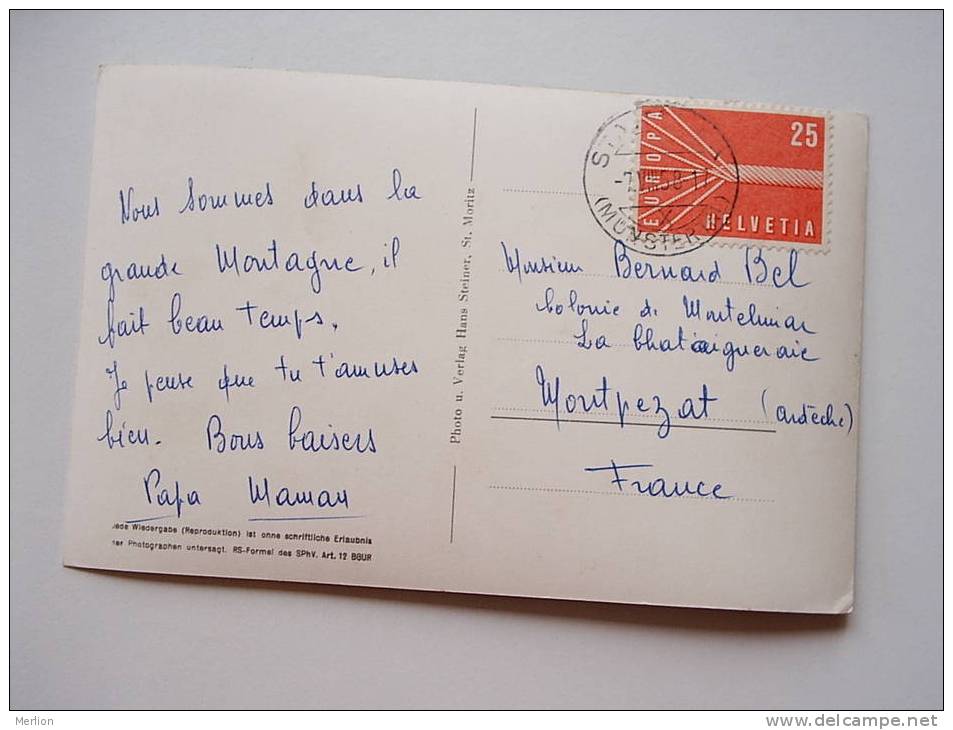 Nous sommes dans la
grande Montagne, il
fait beau temps.
Je pense que tu t'amuses
bien. Bons baisers
Papa Maman
jede Wiedergabe (Reproduktion) ist ohne schriftliche Erlaubnis
Photographen untersagt. RS-Formel des SPhV. Art. 12 BGUR
Photo u. Verlag Hans Steiner, St. Moritz
EUROPA
25
HELVETIA
(MÜNSTER
Monsieur Bernard Bel
Colonie de Montelimar
La Chataigneraie
Montpezat (ardèche)
France
Merlion
http://www.delcampe.net